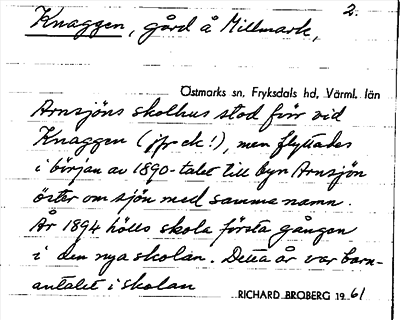 2.
Knaggen, gård å Millmark,
Östmarks sn, Fryksdals hd, Värml. län
Arnsjöns skolhus stod förr vid
Knaggen (jfr ek!), men flyttades
i början av 1890-talet till byn Arnsjön
öster om sjön med samma namn.
År 1894 hölls skola första gången
i den nya skolan. Detta år var barn-
antalet i skolan
RICHARD BROBERG 1961